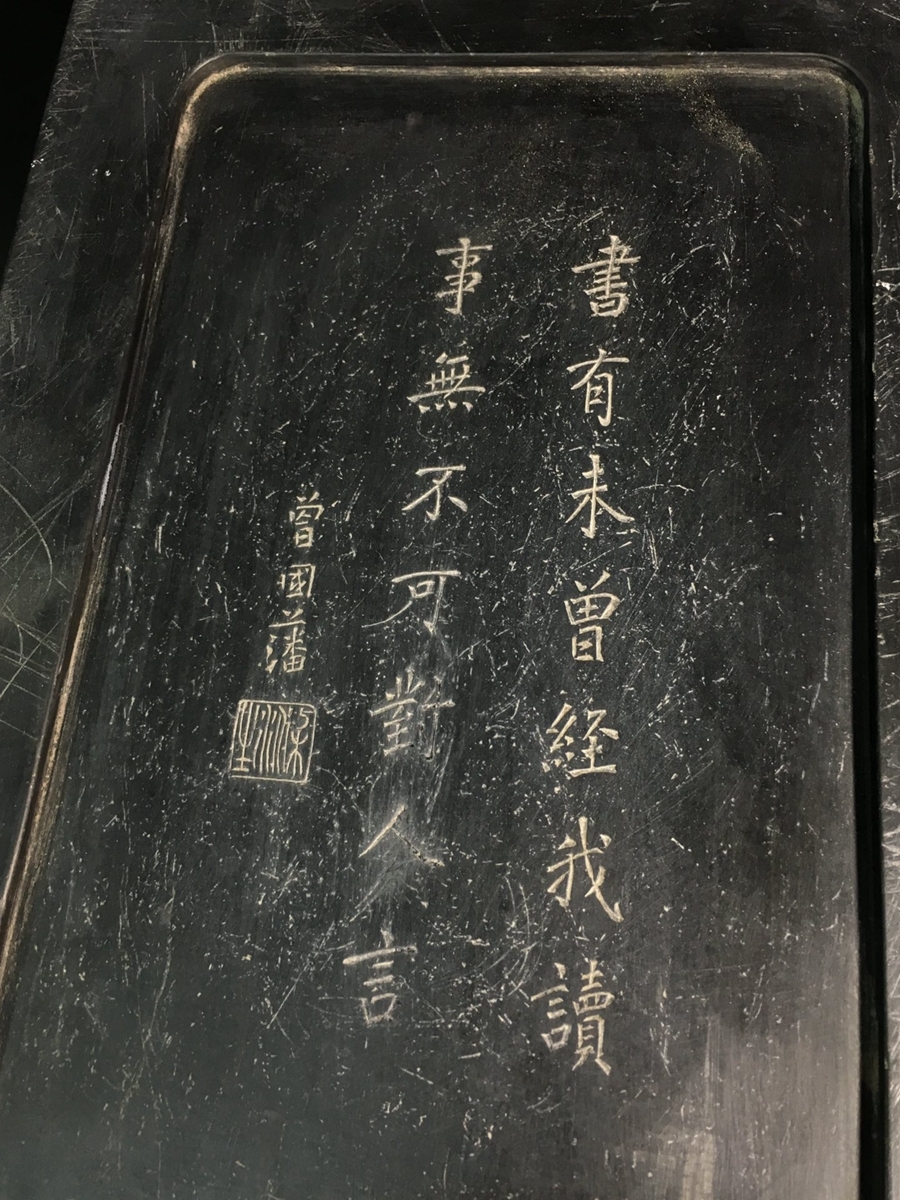 書有未曾経我讀
事無不可對人言
曾國藩